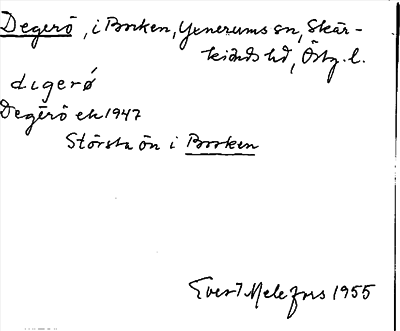 Degerö, i Borken, Yxnerums sn, Skär-
kinds hd, Östg. l.
digerö
Degerö ek 1947
Största ön i Borken
Evert Melefors 1955